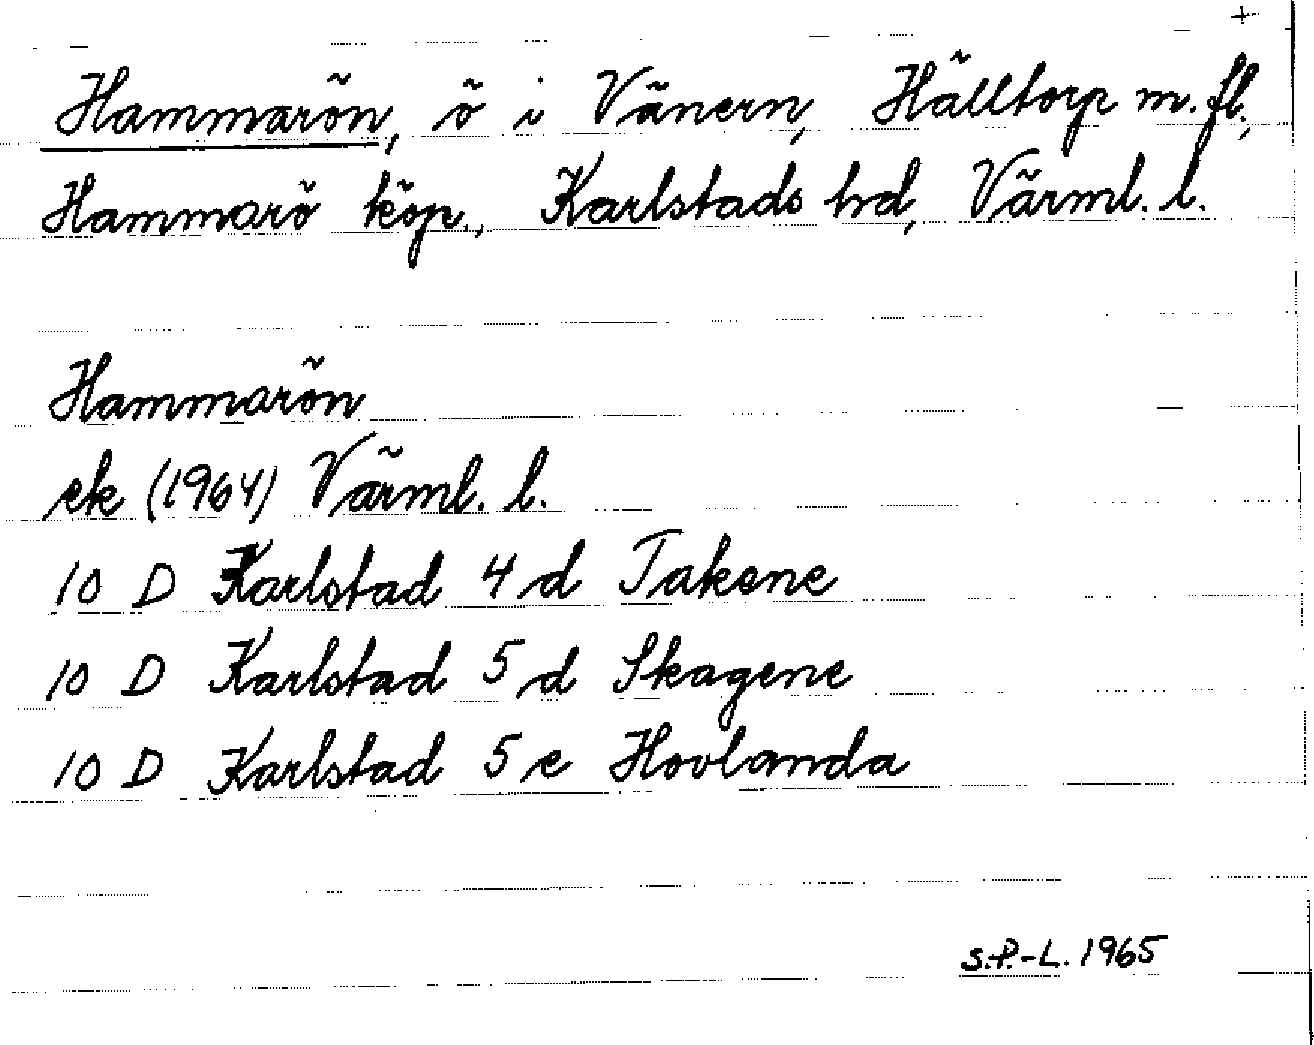 +
Hammarön, ö i Vänern, Hälltorp m.fl.,
Hammarö köp., Karlstads hd, Värml. l.
Hammarön
ek (1964) Värml. l.
10 D Karlstad 4 d Takene
10 D Karlstad 5 d Skagene
10 D Karlstad 5 e Hovlanda
S.P.-L. 1965